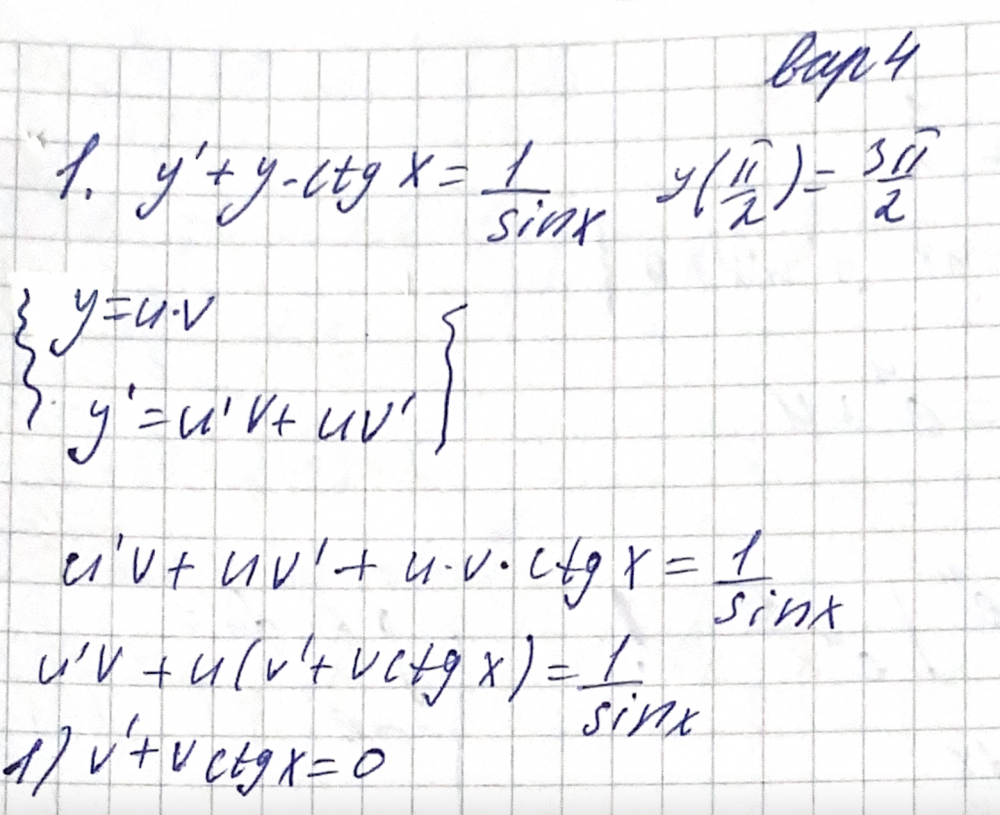 вар 4
1. y' + y · ctg x = 1/sin x   y(π/2) = 3π/2
{ y = u·v
{ y' = u'v + uv' }
u'v + uv' + u·v·ctg x = 1/sin x
u'v + u(v' + v ctg x) = 1/sin x
1) v' + v ctg x = 0